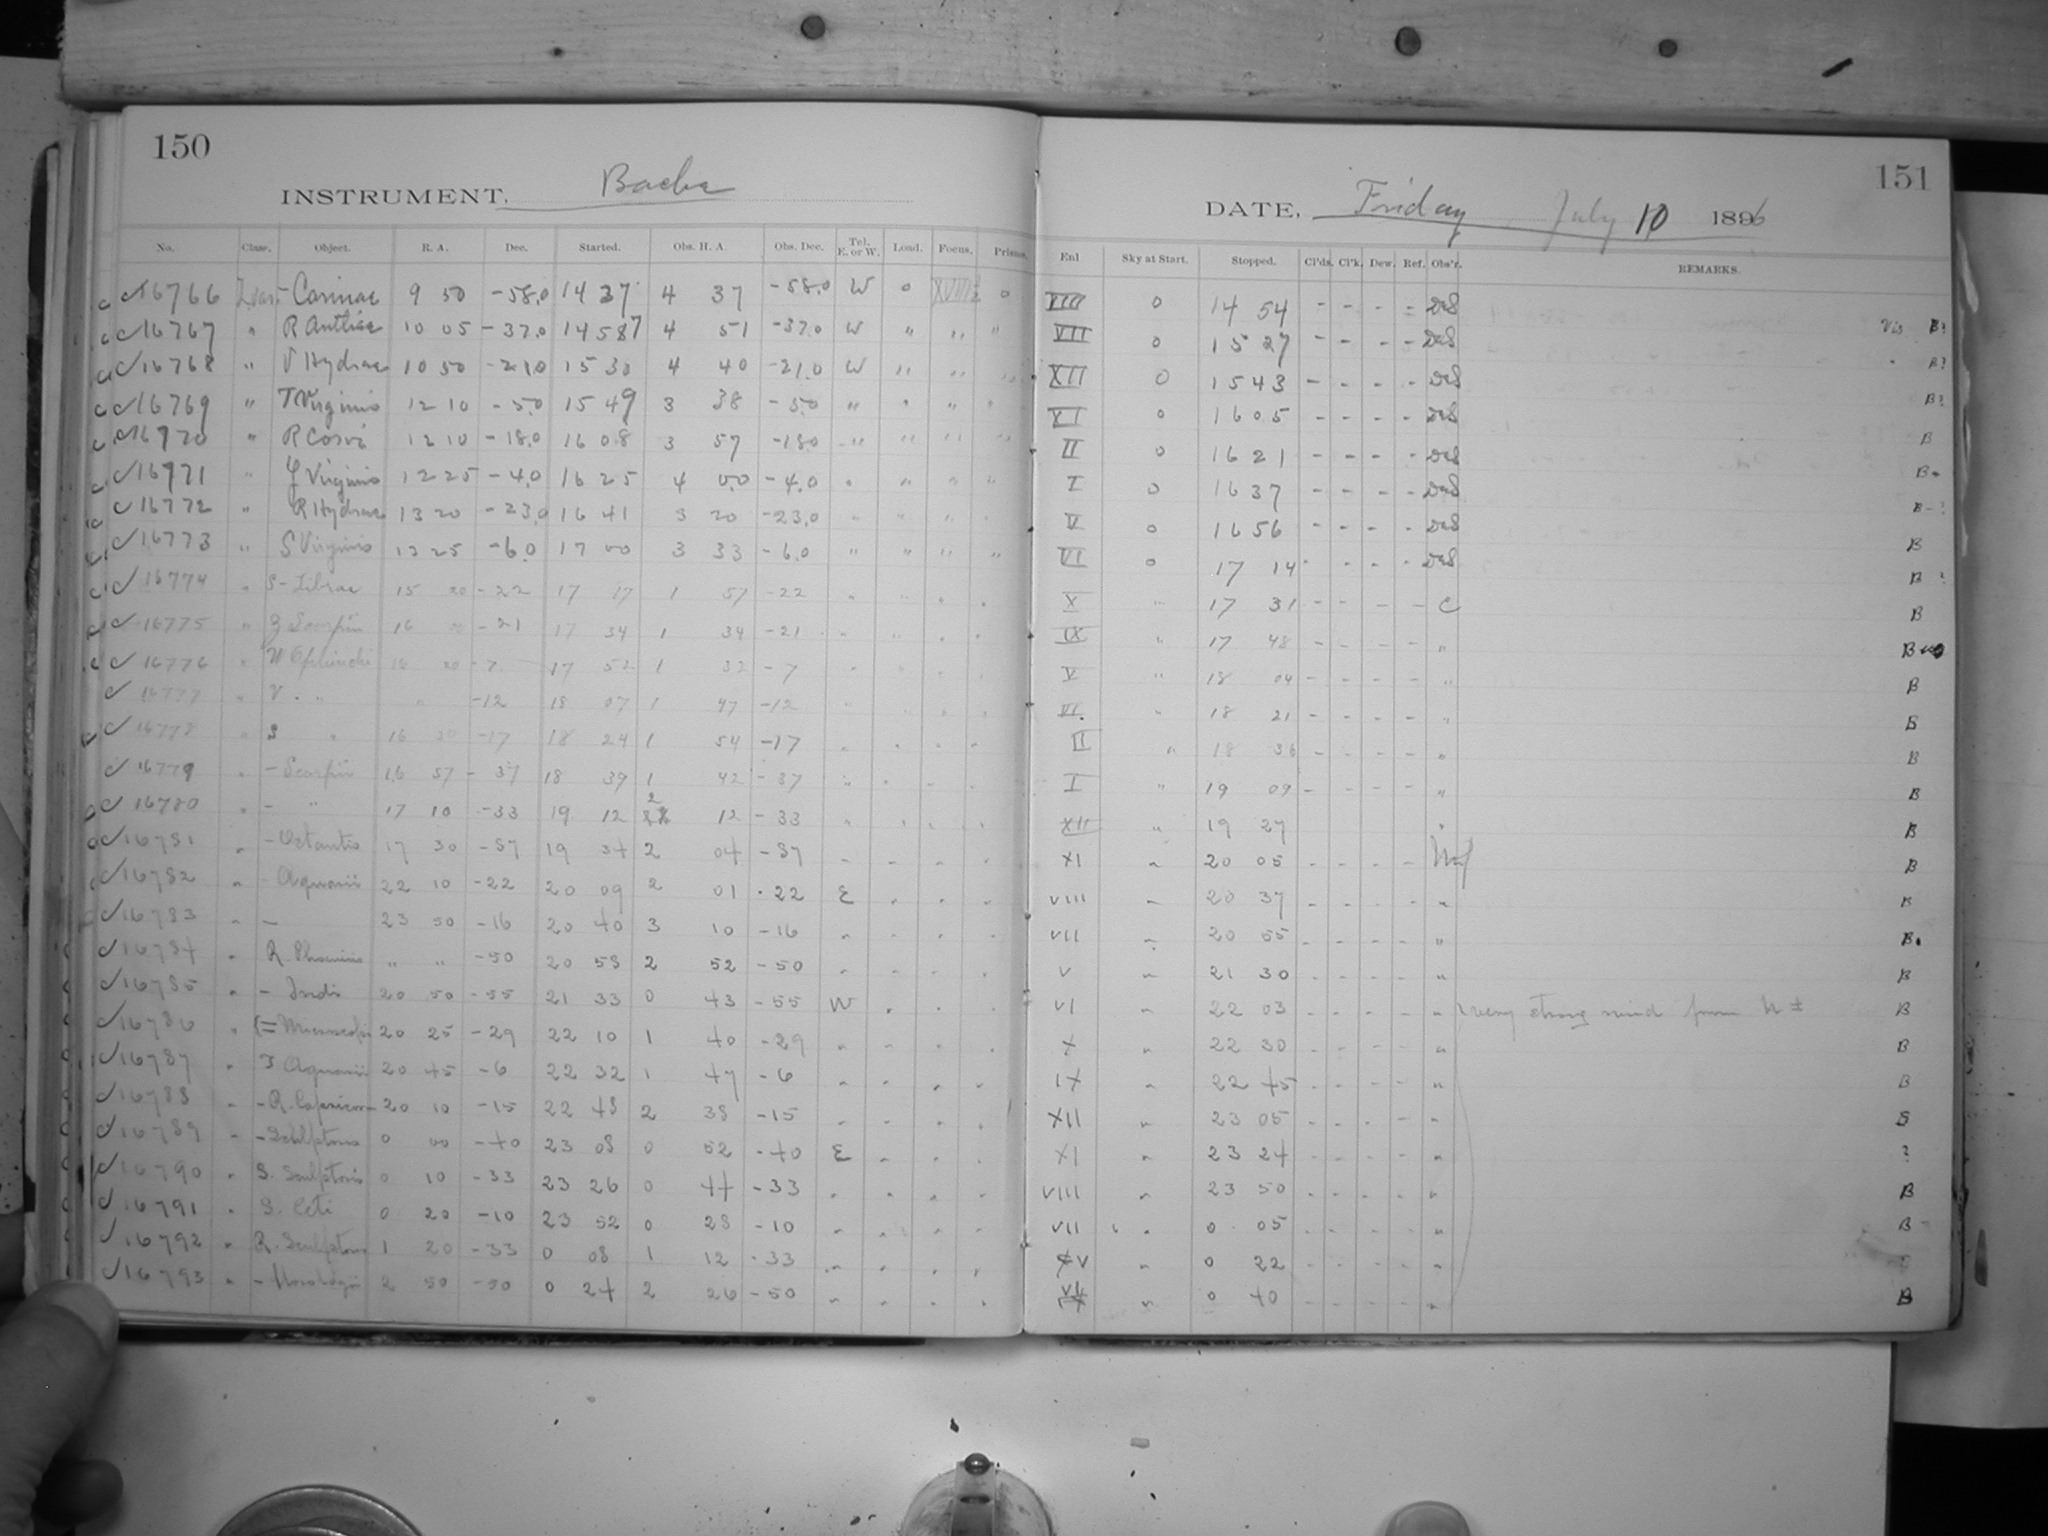 150
INSTRUMENT, Bache
No. Class. Object. R. A. Dec. Started. Obs. H. A. Obs. Dec. Tel. E. or W. Load. Focus. Prisms.
16766 - Carinae 9 50 -58.0 14 37 4 37 -58.0 W 0 0
16767 " R Antliae 10 05 -37.0 14 58 4 51 -37.0 W " " "
16768 " V Hydrae 10 50 -21.0 15 30 4 40 -21.0 W " "
16769 " T Virginis 12 10 -5.0 15 49 3 38 -5.0 " " " "
16770 " R Corvi 12 10 -18.0 16 08 3 57 -18.0 " " " "
16771 " Y Virginis 12 25 -4.0 16 25 4 00 -4.0 " " " "
16772 " R Hydrae 13 20 -23.0 16 41 3 20 -23.0 " " " "
16773 " S Virginis 13 25 -6.0 17 00 3 33 -6.0 " " " "
16774 " S - Librae 15 20 -22 17 17 1 57 -22 " " " "
16775 " Z Scorpii 16 00 -21 17 34 1 34 -21 " " " "
16776 " W Ophiuchi 16 20 -7 17 52 1 32 -7 " " "
16777 " V " " -12 18 07 1 47 -12 " " "
16778 " S " 16 30 -17 18 24 1 54 -17 " " " "
16779 " - Scorpii 16 57 -37 18 39 1 42 -37 " " "
16780 " - " 17 10 -33 19 12 2 12 -33 " " " "
16781 " - Octantis 17 30 -87 19 34 2 04 -87 " " " "
16782 " - Aquarii 22 10 -22 20 09 2 01 -22 E " " "
16783 " - 23 50 -16 20 40 3 10 -16 " " " "
16784 " R. Phoenicis " " -50 20 58 2 52 -50 " " " "
16785 " - Indi 20 50 -55 21 33 0 43 -55 W " " "
16786 " Microscopii 20 25 -29 22 10 1 40 -29 " " " "
16787 " T Aquarii 20 45 -6 22 32 1 47 -6 " " " "
16788 " - R. Capricor- 20 10 -15 22 48 2 38 -15 " " " "
16789 " - Sculptoris 0 00 -40 23 08 0 52 -40 E " " "
16790 " S. Sculptoris 0 10 -33 23 26 0 44 -33 " " " "
16791 " S. Ceti 0 20 -10 23 52 0 28 -10 " " " "
16792 " R. Sculptoris 1 20 -33 0 08 1 12 -33 " " " "
16793 " - Horologii 2 50 -50 0 24 2 26 -50 " " " "
151
DATE, Friday, July 10 1896
Enl Sky at Start. Stopped. Cl'ds. Cl'k. Dew. Ref. Obs'r. REMARKS.
VIII 0 14 54 - - - DeS
VII 0 15 27 - - - - DeS Vis B?
XII 0 15 43 - - - - DeS " B?
XI 0 16 05 - - - - DeS B?
II 0 16 21 - - - - DeS B
I 0 16 37 - - - - DeS B
V 0 16 56 - - - - DeS B-?
VI 0 17 14 - - - - DeS B
X " 17 31 - - - - C B?
IX " 17 48 - - - - " B
V " 18 04 - - - - " B
VI " 18 21 - - - - " B
II " 18 36 - - - - " B
I " 19 09 - - - - " B
XII " 19 27 " B
XI " 20 05 - - - - B
VIII " 20 37 - - - - " B
VII " 20 55 - - - - " B
V " 21 30 - - - - " B
VI " 22 03 - - - - " very strong wind from N ± B
X " 22 30 - - - - " B
IX " 22 45 - - - - " B
XII " 23 05 - - - - " B
XI " 23 24 - - - - " ?
VIII " 23 50 - - - - " B
VII " 0 05 - - - - " B
V " 0 22 - - - - "
VI " 0 40 - - - - " B